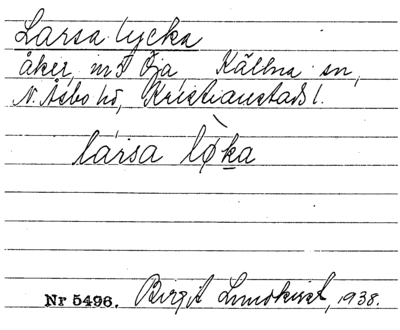 Larsa lycka
åker, n:3 Öja, Källna sn,
N. Åsbo hd, Kristianstads l.
lársa lø̀ka
Nr 5496. Birgit Lundkvist, 1938.